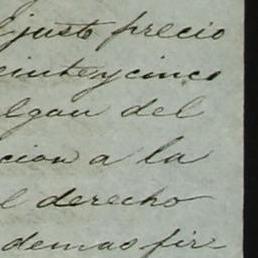 l justo precio
veinte y cinco
algan del
cion a la
l derecho
demas fir